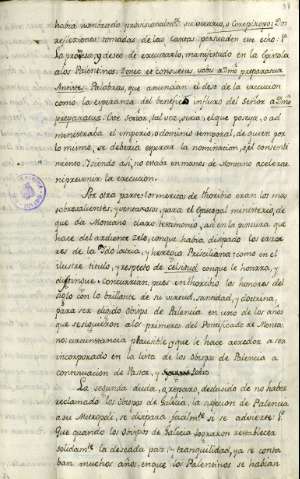 habia nombrado provisionalm.te
reflexiones tomadas de las cartas persuaden este echo. 1.a
La promesa, y deseo de executarlo, manifestado en la Epistola
a los Palentinos
Annuet. Palabras, que anuncian el deseo de la execucion
como la esperanza del benefico influxo del Señor
preparaturus. Este Señor, tal vez, seria, el que poseyó, o ad-
ministraba el imperio, o dominio temporal, de quien por
lo mismo, se deberia esperar la nominacion, o el consenti-
miento. Y siendo asi, no estaba en manos de Montano acelerar
ni prevenir la execucion.
Por otra parte: los meritos de Thoribio eran los mas
sobresalientes, y ventajosos, para el Episcopal ministerio, de
que da Montano claro testimonio, asi en la pintura que
hace del ardiente zelo, conque habia despojado los errores
de la Idolatria, y heregia Prisciliana: como en el
ilustre titulo, y respeto de celsitud conque le honrara, y
distingue. Concurrian, pues en thoribio los honores del
siglo con lo brillante de su virtud, santidad, y doctrina,
para ser elegido obispo de Palencia en uno de los años
que se siguieron a los primeros del Pontificado de Monta-
no: circunstancia plausible, y que le hace acredor a ser
incorporado en la lista de los obispos de Palencia a
continuacion de Pastor, y
La segunda duda, o reparo, deducido de no haber
reclamado los Obispos de Galicia, la adhesion de Palencia
a su Metropoli, se disipara facilm.te si se advierte: 1.o
Que quando los Obispos de Galicia lograron restablecer
solidam.te la deseada paz y tranquilidad, ya se conta-
ban muchos años, en que los Palentinos se habian